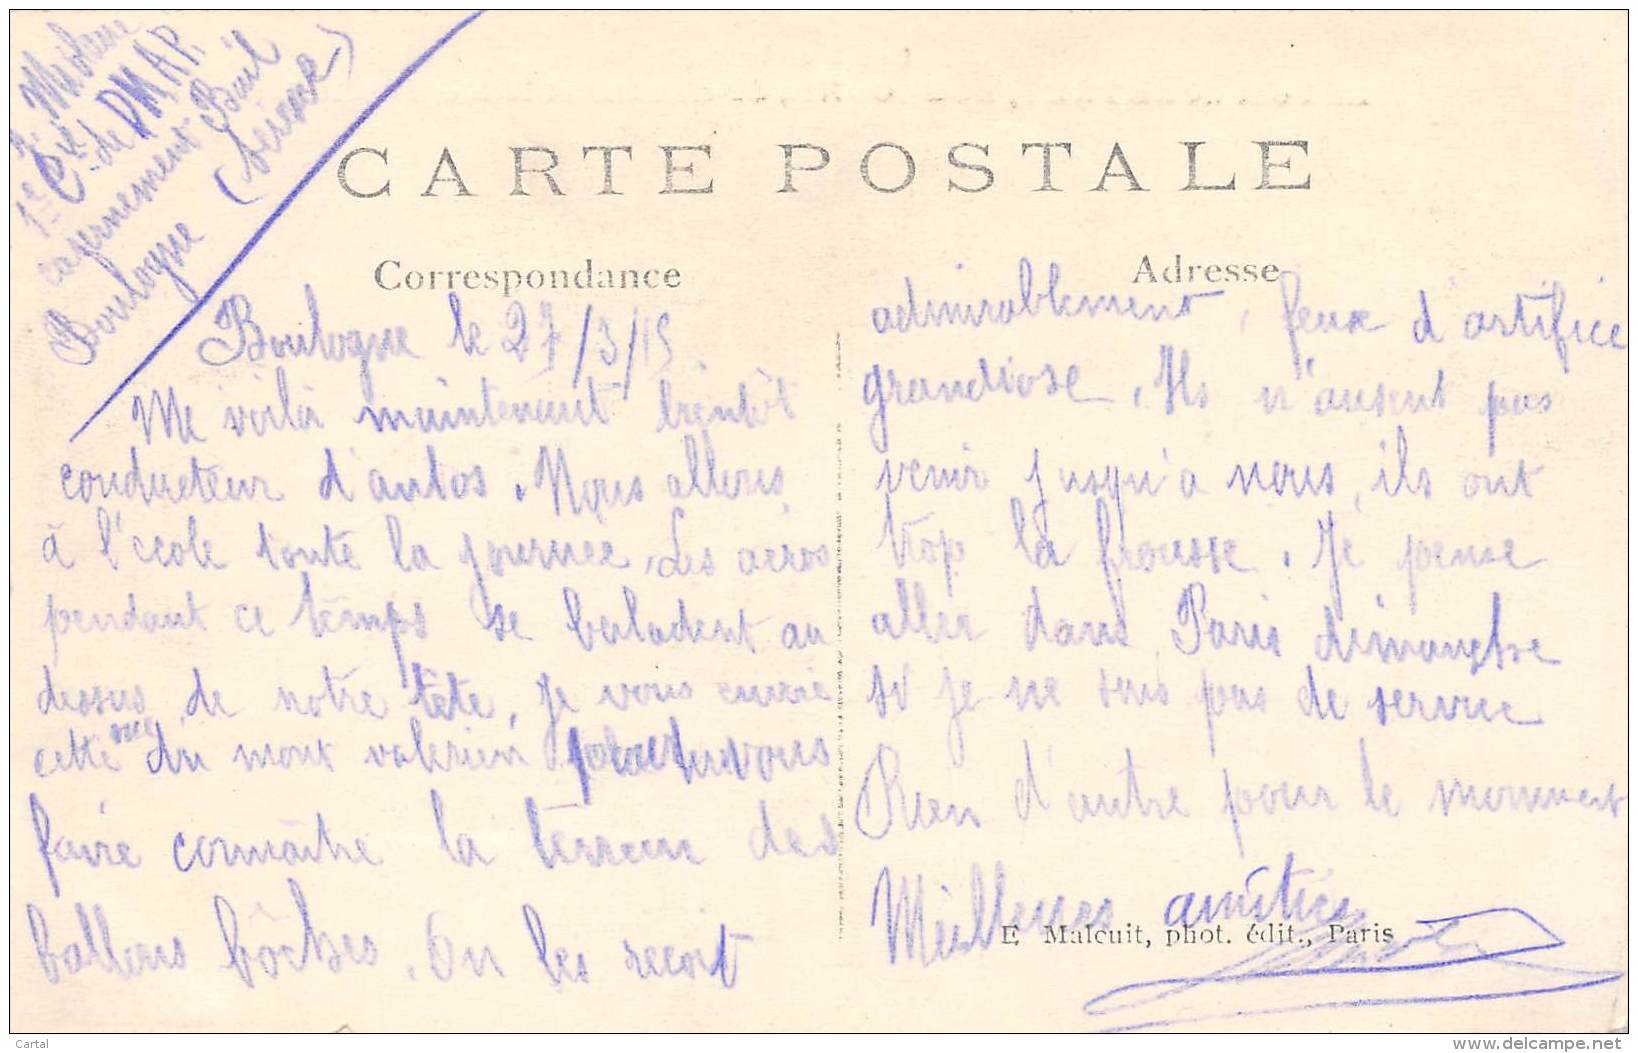 1e Cie de DMAP.
casernement Buil
Boulogne (Seine)
CARTE POSTALE
Correspondance
Boulogne le 27/3/15.
Me voilà maintenant bientôt
conducteur d'autos. Nous allons
à l'école toute la journee. Les aéros
pendant ce temps se baladent au
dessus de notre tête. Je vous envoie
cette vue du mont valerien pour vous
faire connaître la terreur des
ballons bôches. On les recoit
Adresse
admirablement, feux d'artifice
grandiose. Ils n'ausent pas
venir jusqu'a nous, ils ont
trop la frousse. Je pense
aller dans Paris dimanche
si je ne suis pas de service
Rien d'autre pour le moment
Meilleures amitiés
E. Malcuit, phot. édit., Paris
Cartal
www.delcampe.net